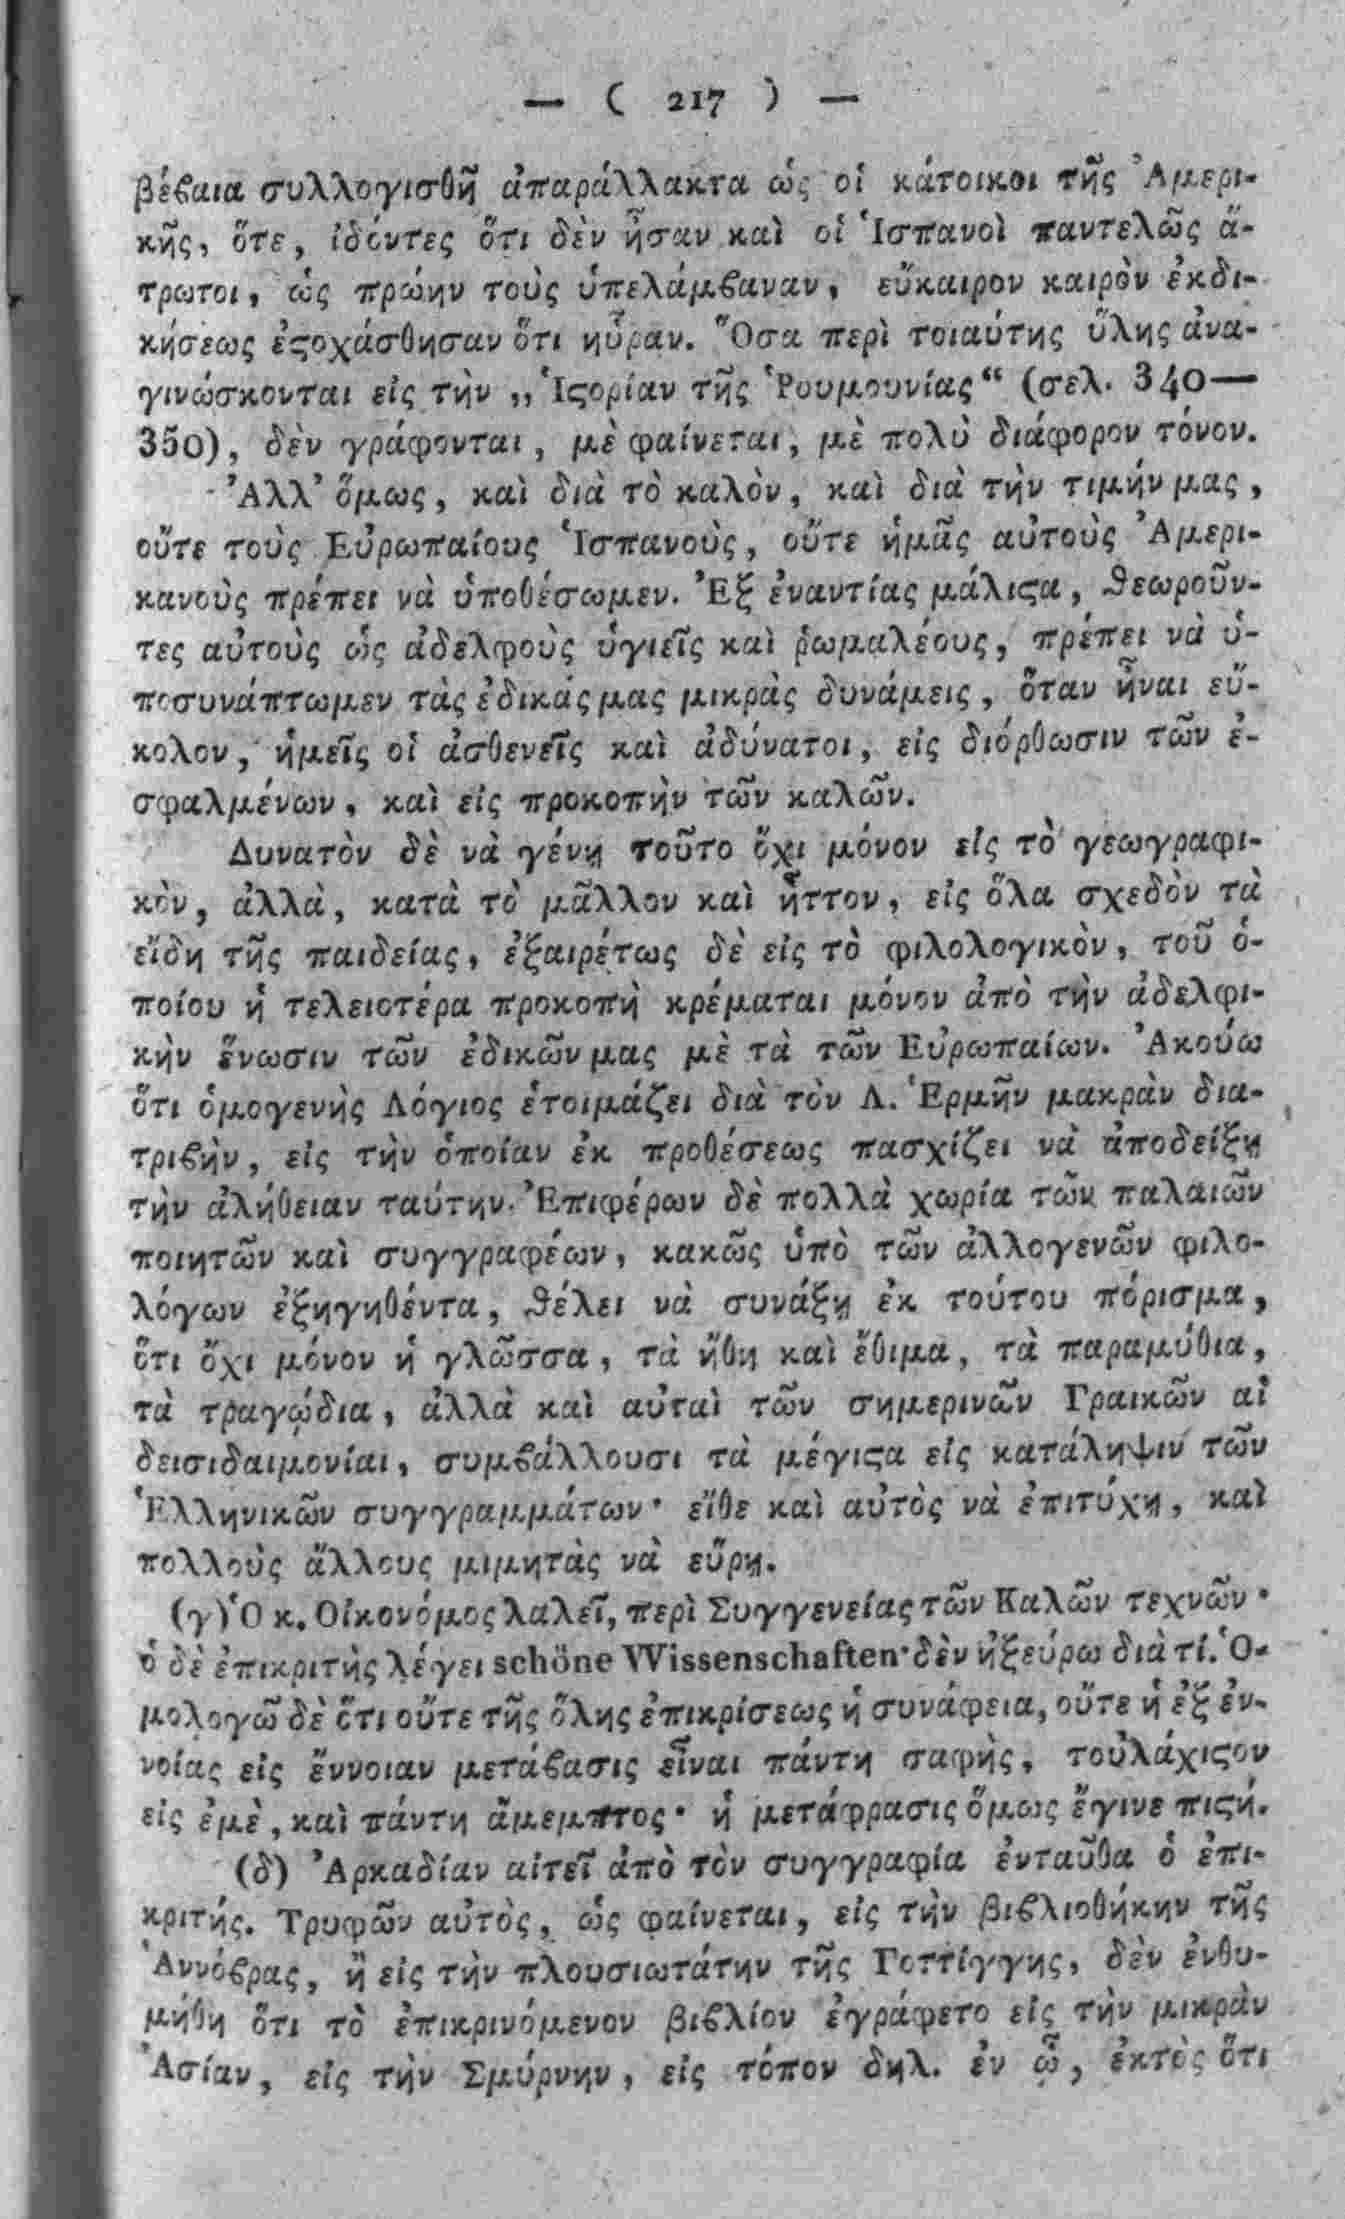 — ( 217 ) —
βέβαια συλλογισθῆ ἀπαράλλακτα ὡς οἱ κάτοικοι τῆς Ἀμερι-
κῆς, ὅτε, ἰδόντες ὅτι δὲν ἦσαν καὶ οἱ Ἱσπανοὶ παντελῶς ἄ-
τρωτοι, ὡς πρώην τοὺς ὑπελάμβαναν, εὔκαιρον καιρὸν ἐκδι-
κήσεως ἐϛοχάσθησαν ὅτι ηὗραν. Ὅσα περὶ τοιαύτης ὕλης ἀνα-
γινώσκονται εἰς τὴν „Ἱϛορίαν τῆς Ῥουμουνίας“ (σελ. 340—
350), δὲν γράφονται, μὲ φαίνεται, μὲ πολὺ διάφορον τόνον.
Ἀλλ' ὅμως, καὶ διὰ τὸ καλὸν, καὶ διὰ τὴν τιμήν μας,
οὔτε τοὺς Εὐρωπαίους Ἱσπανοὺς, οὔτε ἡμᾶς αὐτοὺς Ἀμερι-
κανοὺς πρέπει νὰ ὑποθέσωμεν. Ἐξ ἐναντίας μάλιϛα, ϑεωροῦν-
τες αὐτοὺς ὡς ἀδελφοὺς ὑγιεῖς καὶ ῥωμαλέους, πρέπει νὰ ὑ-
ποσυνάπτωμεν τὰς ἐδικάς μας μικρὰς δυνάμεις, ὅταν ἦναι εὔ-
κολον, ἡμεῖς οἱ ἀσθενεῖς καὶ ἀδύνατοι, εἰς διόρθωσιν τῶν ἐ-
σφαλμένων, καὶ εἰς προκοπὴν τῶν καλῶν.
Δυνατὸν δὲ νὰ γένῃ τοῦτο ὄχι μόνον εἰς τὸ γεωγραφι-
κὸν, ἀλλὰ, κατὰ τὸ μᾶλλον καὶ ἧττον, εἰς ὅλα σχεδὸν τὰ
εἴδη τῆς παιδείας, ἐξαιρέτως δὲ εἰς τὸ φιλολογικὸν, τοῦ ὁ-
ποίου ἡ τελειοτέρα προκοπὴ κρέμαται μόνον ἀπὸ τὴν ἀδελφι-
κὴν ἕνωσιν τῶν ἐδικῶν μας μὲ τὰ τῶν Εὐρωπαίων. Ἀκούω
ὅτι ὁμογενὴς Λόγιος ἑτοιμάζει διὰ τὸν Λ. Ἑρμῆν μακρὰν δια-
τριβὴν, εἰς τὴν ὁποίαν ἐκ προθέσεως πασχίζει νὰ ἀποδείξῃ
τὴν ἀλήθειαν ταύτην. Ἐπιφέρων δὲ πολλὰ χωρία τῶν παλαιῶν
ποιητῶν καὶ συγγραφέων, κακῶς ὑπὸ τῶν ἀλλογενῶν φιλο-
λόγων ἐξηγηθέντα, ϑέλει νὰ συνάξῃ ἐκ τούτου πόρισμα,
ὅτι ὄχι μόνον ἡ γλῶσσα, τὰ ἤθη καὶ ἔθιμα, τὰ παραμύθια,
τὰ τραγῴδια, ἀλλὰ καὶ αὐταὶ τῶν σημερινῶν Γραικῶν αἱ
δεισιδαιμονίαι, συμβάλλουσι τὰ μέγιϛα εἰς κατάληψιν τῶν
Ἑλληνικῶν συγγραμμάτων· εἴθε καὶ αὐτὸς νὰ ἐπιτύχῃ, καὶ
πολλοὺς ἄλλους μιμητὰς νὰ εὕρῃ.
(γ) Ὁ κ. Οἰκονόμος λαλεῖ, περὶ Συγγενείας τῶν Καλῶν τεχνῶν·
ὁ δὲ ἐπικριτὴς λέγει schöne Wissenschaften· δὲν ἠξεύρω διὰ τί. Ὁ-
μολογῶ δὲ ὅτι οὔτε τῆς ὅλης ἐπικρίσεως ἡ συνάφεια, οὔτε ἡ ἐξ ἐν-
νοίας εἰς ἔννοιαν μετάβασις εἶναι πάντη σαφὴς, τοὐλάχιϛον
εἰς ἐμὲ, καὶ πάντη ἄμεμπτος· ἡ μετάφρασις ὅμως ἔγινε πιϛή.
(δ) Ἀρκαδίαν αἰτεῖ ἀπὸ τὸν συγγραφία ἐνταῦθα ὁ ἐπι-
κριτής. Τρυφῶν αὐτὸς, ὡς φαίνεται, εἰς τὴν βιβλιοθήκην τῆς
Ἀννόβρας, ἢ εἰς τὴν πλουσιωτάτην τῆς Γοττίγγης, δὲν ἐνθυ-
μήθη ὅτι τὸ ἐπικρινόμενον βιβλίον ἐγράφετο εἰς τὴν μικρὰν
Ἀσίαν, εἰς τὴν Σμύρνην, εἰς τόπον δηλ. ἐν ᾧ, ἐκτὸς ὅτι